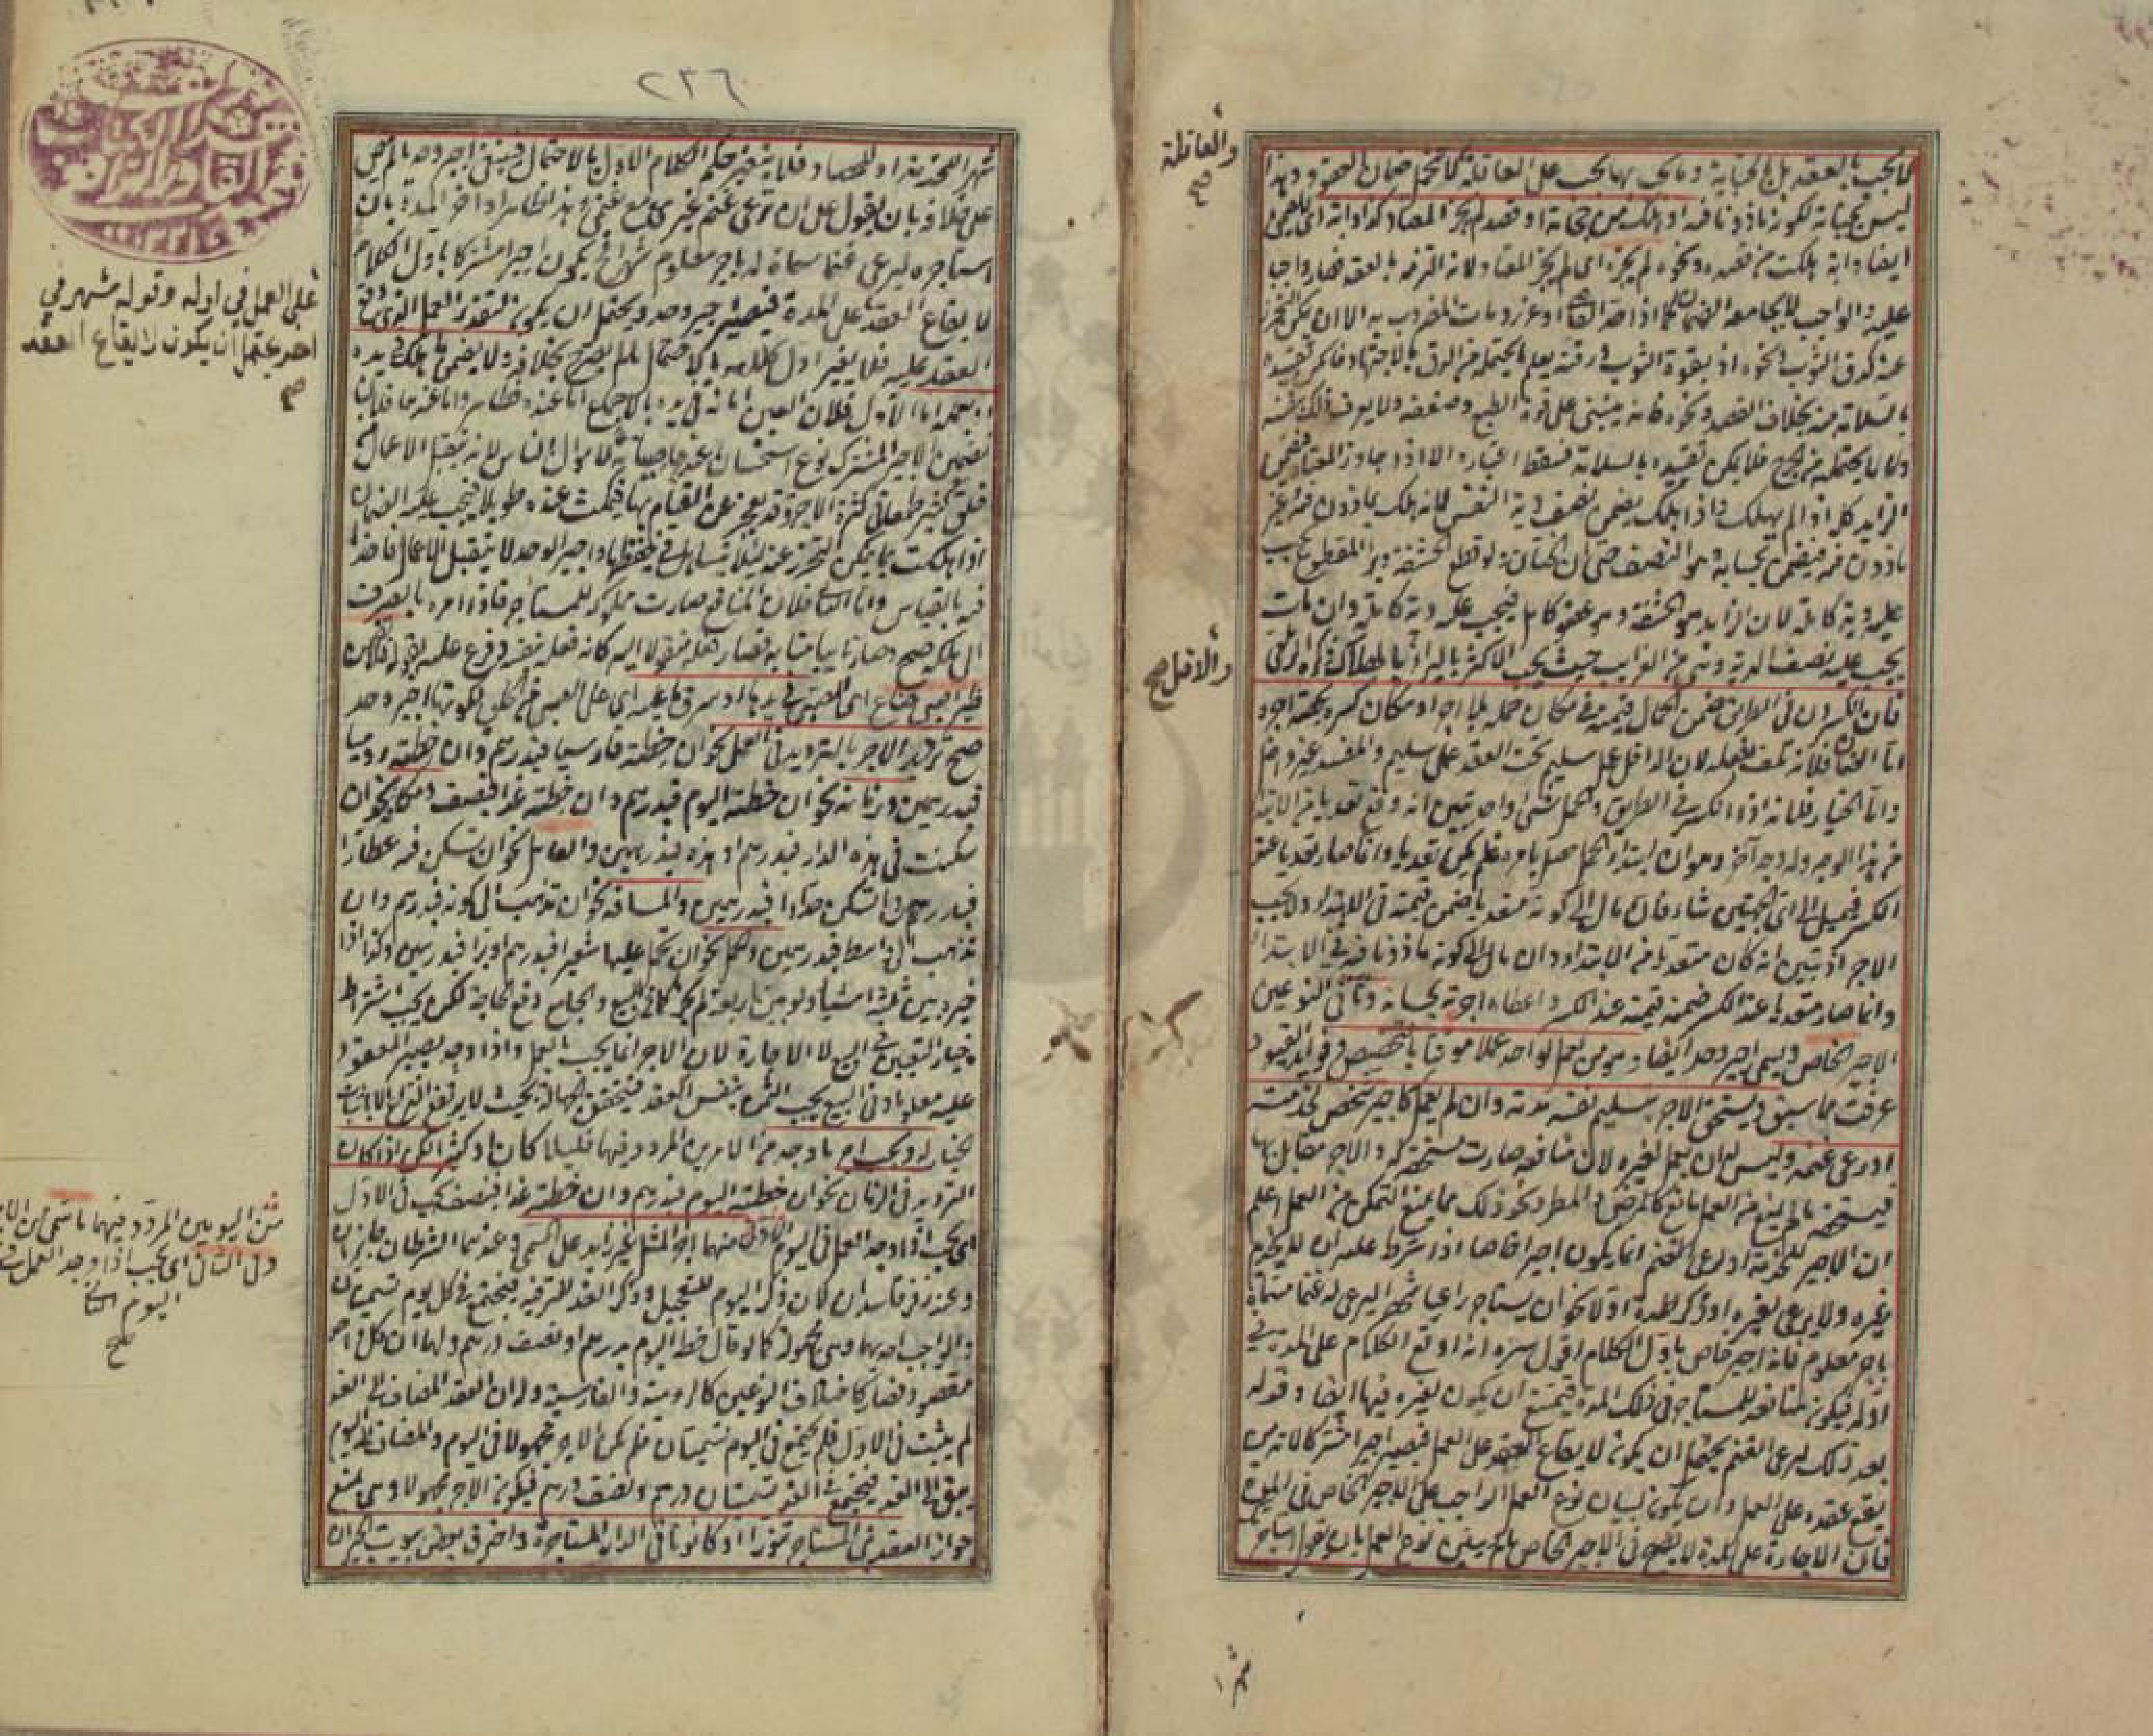 والعاقلة
صح
لا يجب بالعقد بل بالجناية وما يجب بها يجب على العاقلة لا تتحمل ضمان العقود وهذا
ليس بجناية لكونه مأذونا فيه او هلك من حجامة او فصد لم يجز المعتاد كذا دابة اي لا يضمن
ايضا دابة هلكت من فصده ونحوه لم يجزه اي لم يجز المعتاد لانه التزمه بالعقد فصار واجبا
عليه والواجب لا يجامعه الضمان كما اذا حد القاضي او عزر ومات المضروب به الا ان يمكن التحرز
عنه كدق الثوب ونحوه اذ بقوة الثوب ورقته يعلم ما يحتمله من الدق بالاجتهاد فامكن تقييده
بالسلامة منه بخلاف الفصد ونحوه فانه يبتنى على قوة الطبع وضعفه ولا يعرف ذلك بنفسه
ولا ما يحتمله من الجرح فلا يمكن تقييده بالسلامة فسقط اعتباره الا اذا جاوز المعتاد فيضمن
الزايد كله اذا لم يهلك واذا هلك يضمن نصف دية النفس لانه هلك بمأذون فيه وغير
مأذون فيه فيضمن بحسابه وهو النصف حتى ان الختان لو قطع الحشفة وبرأ المقطوع يجب
عليه دية كاملة لان الزايد هو الحشفة وهو عضو كامل فيجب عليه دية كاملة وان مات
يجب عليه نصف الدية وهي من الغرايب حيث يجب الاكثر بالبرء بالهلاك ذكره الزيلعي
والاقل صح
فان انكسر دن في الطريق ضمن الحمال قيمته في مكان حمله بلا اجر او مكان كسره بحصة اجره
اما الضمان فلانه تلف بفعله لان الداخل عمل سليم تحت العقد على سليم والمفسد غير داخل
واما الخيار فلانه اذا انكسر في الطريق والحمل شيء واحد تبين انه وقع تعديا من الابتداء
من هذا الوجه وله وجه آخر وهو ان ابتداء الحمل حصل بامره فلم يكن تعديا وانما صار تعديا عند
الكسر فيميل الى اي الجهتين شاء فان مال الى كونه متعديا ضمن قيمته في الابتداء ولا يجب
الاجر اذ تبين انه كان متعديا من الابتداء وان مال الى كونه مأذونا فيه في الابتداء
وانما صار متعديا عند الكسر ضمنه قيمته عند الكسر واعطاه اجرته بحسابه وثاني النوعين
الاجير الخاص ويسمى اجير وحد ايضا وهو من يعمل لواحد عملا موقتا بالتخصيص وفوايد القيود
عرفت مما سبق ويستحق الاجر بتسليم نفسه مدته وان لم يعمل كاجير شخص لخدمته
او رعي غنمه وليس له ان يعمل لغيره لان منافعه صارت مستحقة له والاجر مقابل بها
فيستحقه ما لم يمنع من العمل مانع كالمرض والمطر ونحو ذلك مما يمنع التمكن من العمل اعلم
ان الاجير للخدمة او لرعي الغنم انما يكون اجيرا خاصا اذا شرط عليه ان لا يخدم
غيره ولا يرعى لغيره او ذكر المدة اولا نحو ان يستأجر راعيا شهرا ليرعى له غنما مسماة
باجر معلوم فانه اجير خاص باول الكلام اقول سره انه اوقع الكلام على المدة في
اوله فيكون منافعه للمستأجر في تلك المدة فيمتنع ان يكون لغيره فيها ايضا وقوله
بعد ذلك لرعي الغنم يحتمل ان يكون لايقاع العقد على العمل فيصير اجيرا مشتركا لانه من
يقع عقده على العمل وان يكون لبيان نوع العمل الواجب على الاجير الخاص في المدة
فان الاجارة على المدة لا يصح في الاجير الخاص ما لم يبين نوع العمل بان يقول استأجرتك
٢٣٦
شهرا للخدمة او للحصاد فلا يتغير حكم الكلام الاول بالاحتمال فيبقى اجير وحد ما لم ينص
على خلافه بان يقول على ان ترعى غنم غيري مع غنمي وهذا ظاهر او اخر المدة بان
استأجره ليرعى غنما مسماة له باجر معلوم شهرا فح يكون اجيرا مشتركا باول الكلام
لايقاع العقد على المدة فيصير اجير وحد ويحتمل ان يكون لتقدير العمل الذي وقع
على العمل في اوله وقوله شهر في
احد يحتمل ان يكون لايقاع العقد
صح
العقد عليه فلا يغير اول كلامه بالاحتمال ما لم يصرح بخلافه ولا يضمن ما هلك في يده
او بعمله اما الاول فلان العين امانة في يده بالاجماع اما عنده فظاهر واما عندهما فلان
تضمين الاجير المشترك نوع استحسان عندهما صيانة لاموال الناس لانه يتقبل الاعمال
خلق كثير طمعا في كثرة الاجرة وقد يعجز عن القيام بها فيمكث عنده طويلا فيجب عليه الضمان
اذا هلكت بما يمكن التحرز عنه لئلا يتساهل في حفظها واجير الوحد لا يتقبل الاعمال فاخذا
فيه بالقياس واما الثاني فلان المنافع صارت مملوكة للمستأجر فاذا امره بالصرف
الى ملكه صح وصار نايبا منابه فصار فعله منقولا اليه كانه فعله بنفسه وفرع عليه بقوله فلا يضمن
ظئر صبي ضاع اي الصبي في يدها او سرق ما عليه اي على الصبي من الحلي لكونها اجير وحد
صح ترديد الاجر بالترديد في العمل نحو ان خطته فارسيا فبدرهم وان خطته روميا
فبدرهمين وزمانه نحو ان خطته اليوم فبدرهم وان خطته غدا فبنصف ومكانه نحو ان
سكنت في هذه الدار فبدرهم او هذه فبدرهمين والعامل نحو ان تسكن فيه عطارا
فبدرهم وان تسكن حدادا فبدرهمين والمسافة نحو ان تذهب الى كوفة فبدرهم وان
تذهب الى واسط فبدرهمين والحمل نحو ان تحمل عليها شعيرا فبدرهم او برا فبدرهمين وكذا اذا
خيره بين ثلثة اشياء ولو بين اربعة لم يجز كما في البيع والجامع دفع الحاجة لكن يجب اشتراط
خيار التعيين في البيع لا الاجارة لان الاجر انما يجب بالعمل واذا وجد يصير المعقود
عليه معلوما وفي البيع يجب الثمن بنفس العقد فيتحقق الجهالة بحيث لا يرتفع النزاع الا باثبات
الخيار له ويجب اجر ما وجد من الامرين المردد فيهما قليلا كان او كثيرا لكن اذا كان
الترديد في الزمان نحو ان خطته اليوم فبدرهم وان خطته غدا فبنصف يجب في الاول
اي يجب اذا وجد العمل في اليوم الاول منهما اجر المثل غير زايد على المسمى وعندهما الشرطان جايزان
من اليومين المردد فيهما ما سمي من الاجر
وفي الثاني اي يجب اذا وجد العمل في
اليوم الثاني
صح
وعند زفر فاسدان لان ذكر اليوم للتعجيل وذكر الغد للترفيه فيجتمع في كل يوم تسميتان
والواجب احدهما وهي مجهولة كما لو قال خطه اليوم بدرهم او نصف درهم ولهما ان كل واحد
مقصود فصار كاختلاف النوعين كالرومية والفارسية وله ان العقد المضاف الى الغد
لم يثبت في الاول فلم يجتمع في اليوم تسميتان فلم يكن الاجر مجهولا في اليوم والمضاف الى اليوم
يبقى الى الغد فيجتمع في الغد تسميتان درهم ونصف درهم فيكون الاجر مجهولا وهي تمنع
جواز العقد بنى المستأجر تنورا او كانونا في الدار المستأجرة واحترق بعض بيوت الجيران